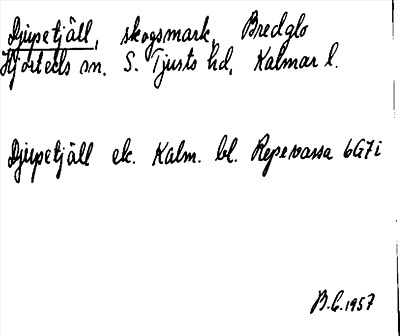 Djupetjäll, skogsmark, Bredglo
Hjorteds sn. S. Tjusts hd, Kalmar l.
Djupetjäll ek. Kalm. bl. Repevassa 6G7i
B.C. 1957